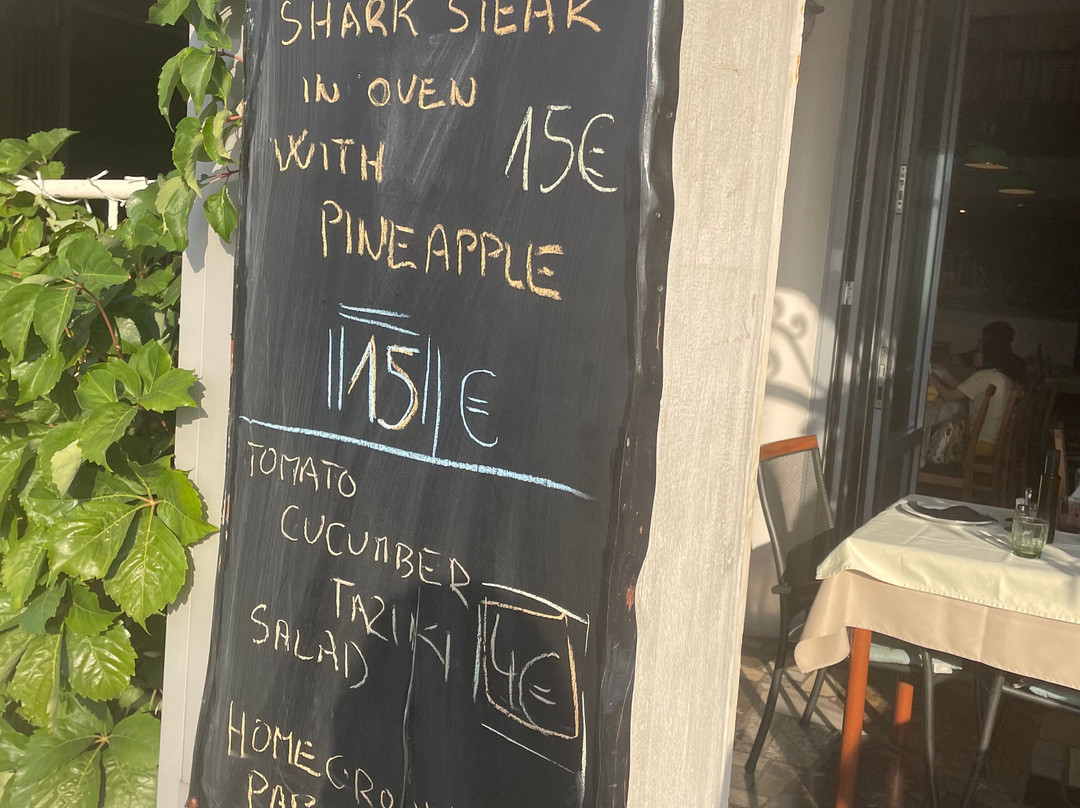 SHARK STEAK
IN OVEN
WITH 15€
PINEAPPLE
15 €
TOMATO
CUCUMBER
TAZIKI
SALAD 4€